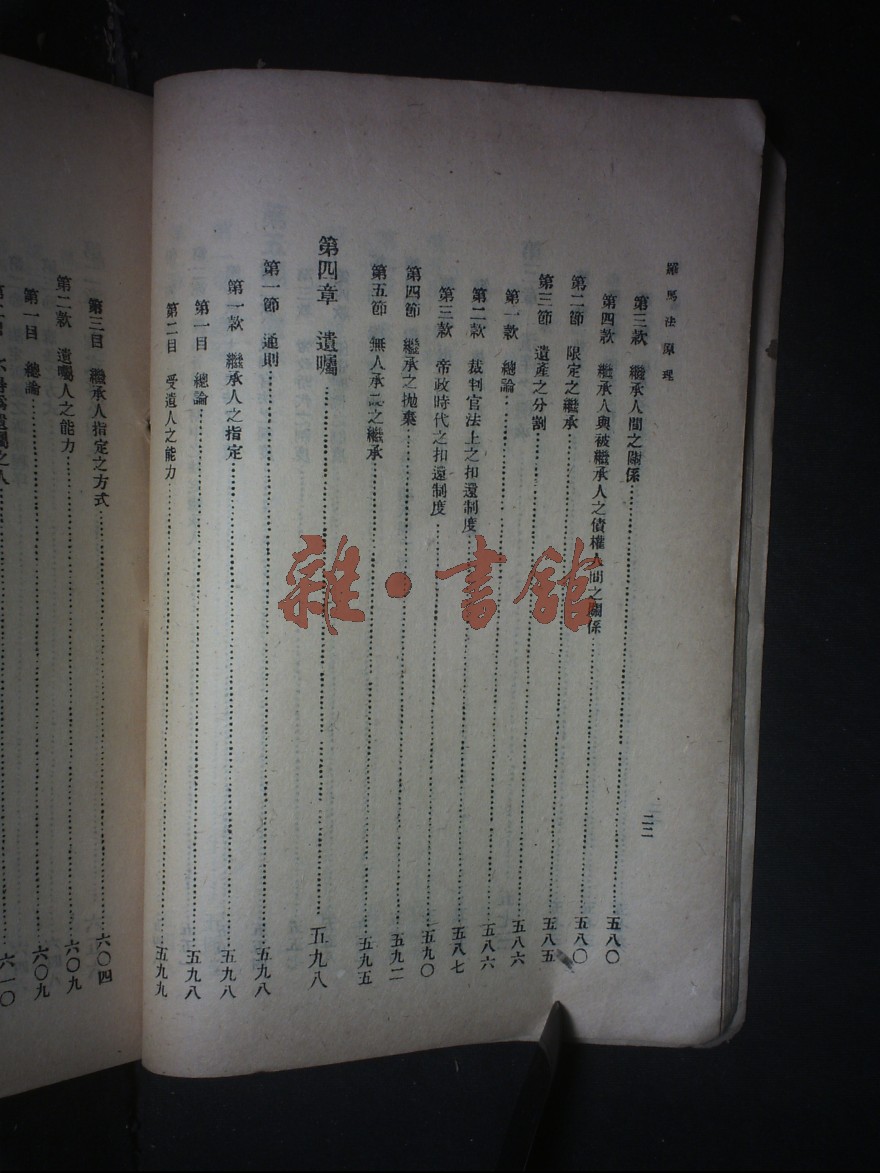 羅馬法原理
二二
第三款 繼承人間之關係……五八〇
第四款 繼承人與被繼承人之債權人間之關係……五八〇
第二節 限定之繼承……五八〇
第三節 遺產之分割……五八五
第一款 總論……五八六
第二款 裁判官法上之扣還制度……五八七
第三款 帝政時代之扣還制度……五九〇
第四節 繼承之拋棄……五九二
第五節 無人承認之繼承……五九五
第四章 遺囑……五九八
第一節 通則……五九八
第一款 繼承人之指定……五九八
第一目 總論……五九八
第二目 受遺人之能力……五九九
第三目 繼承人指定之方式……六〇四
第二款 遺囑人之能力……六〇九
第一目 總論……六〇九
遺囑之人……六一〇
雜·書館